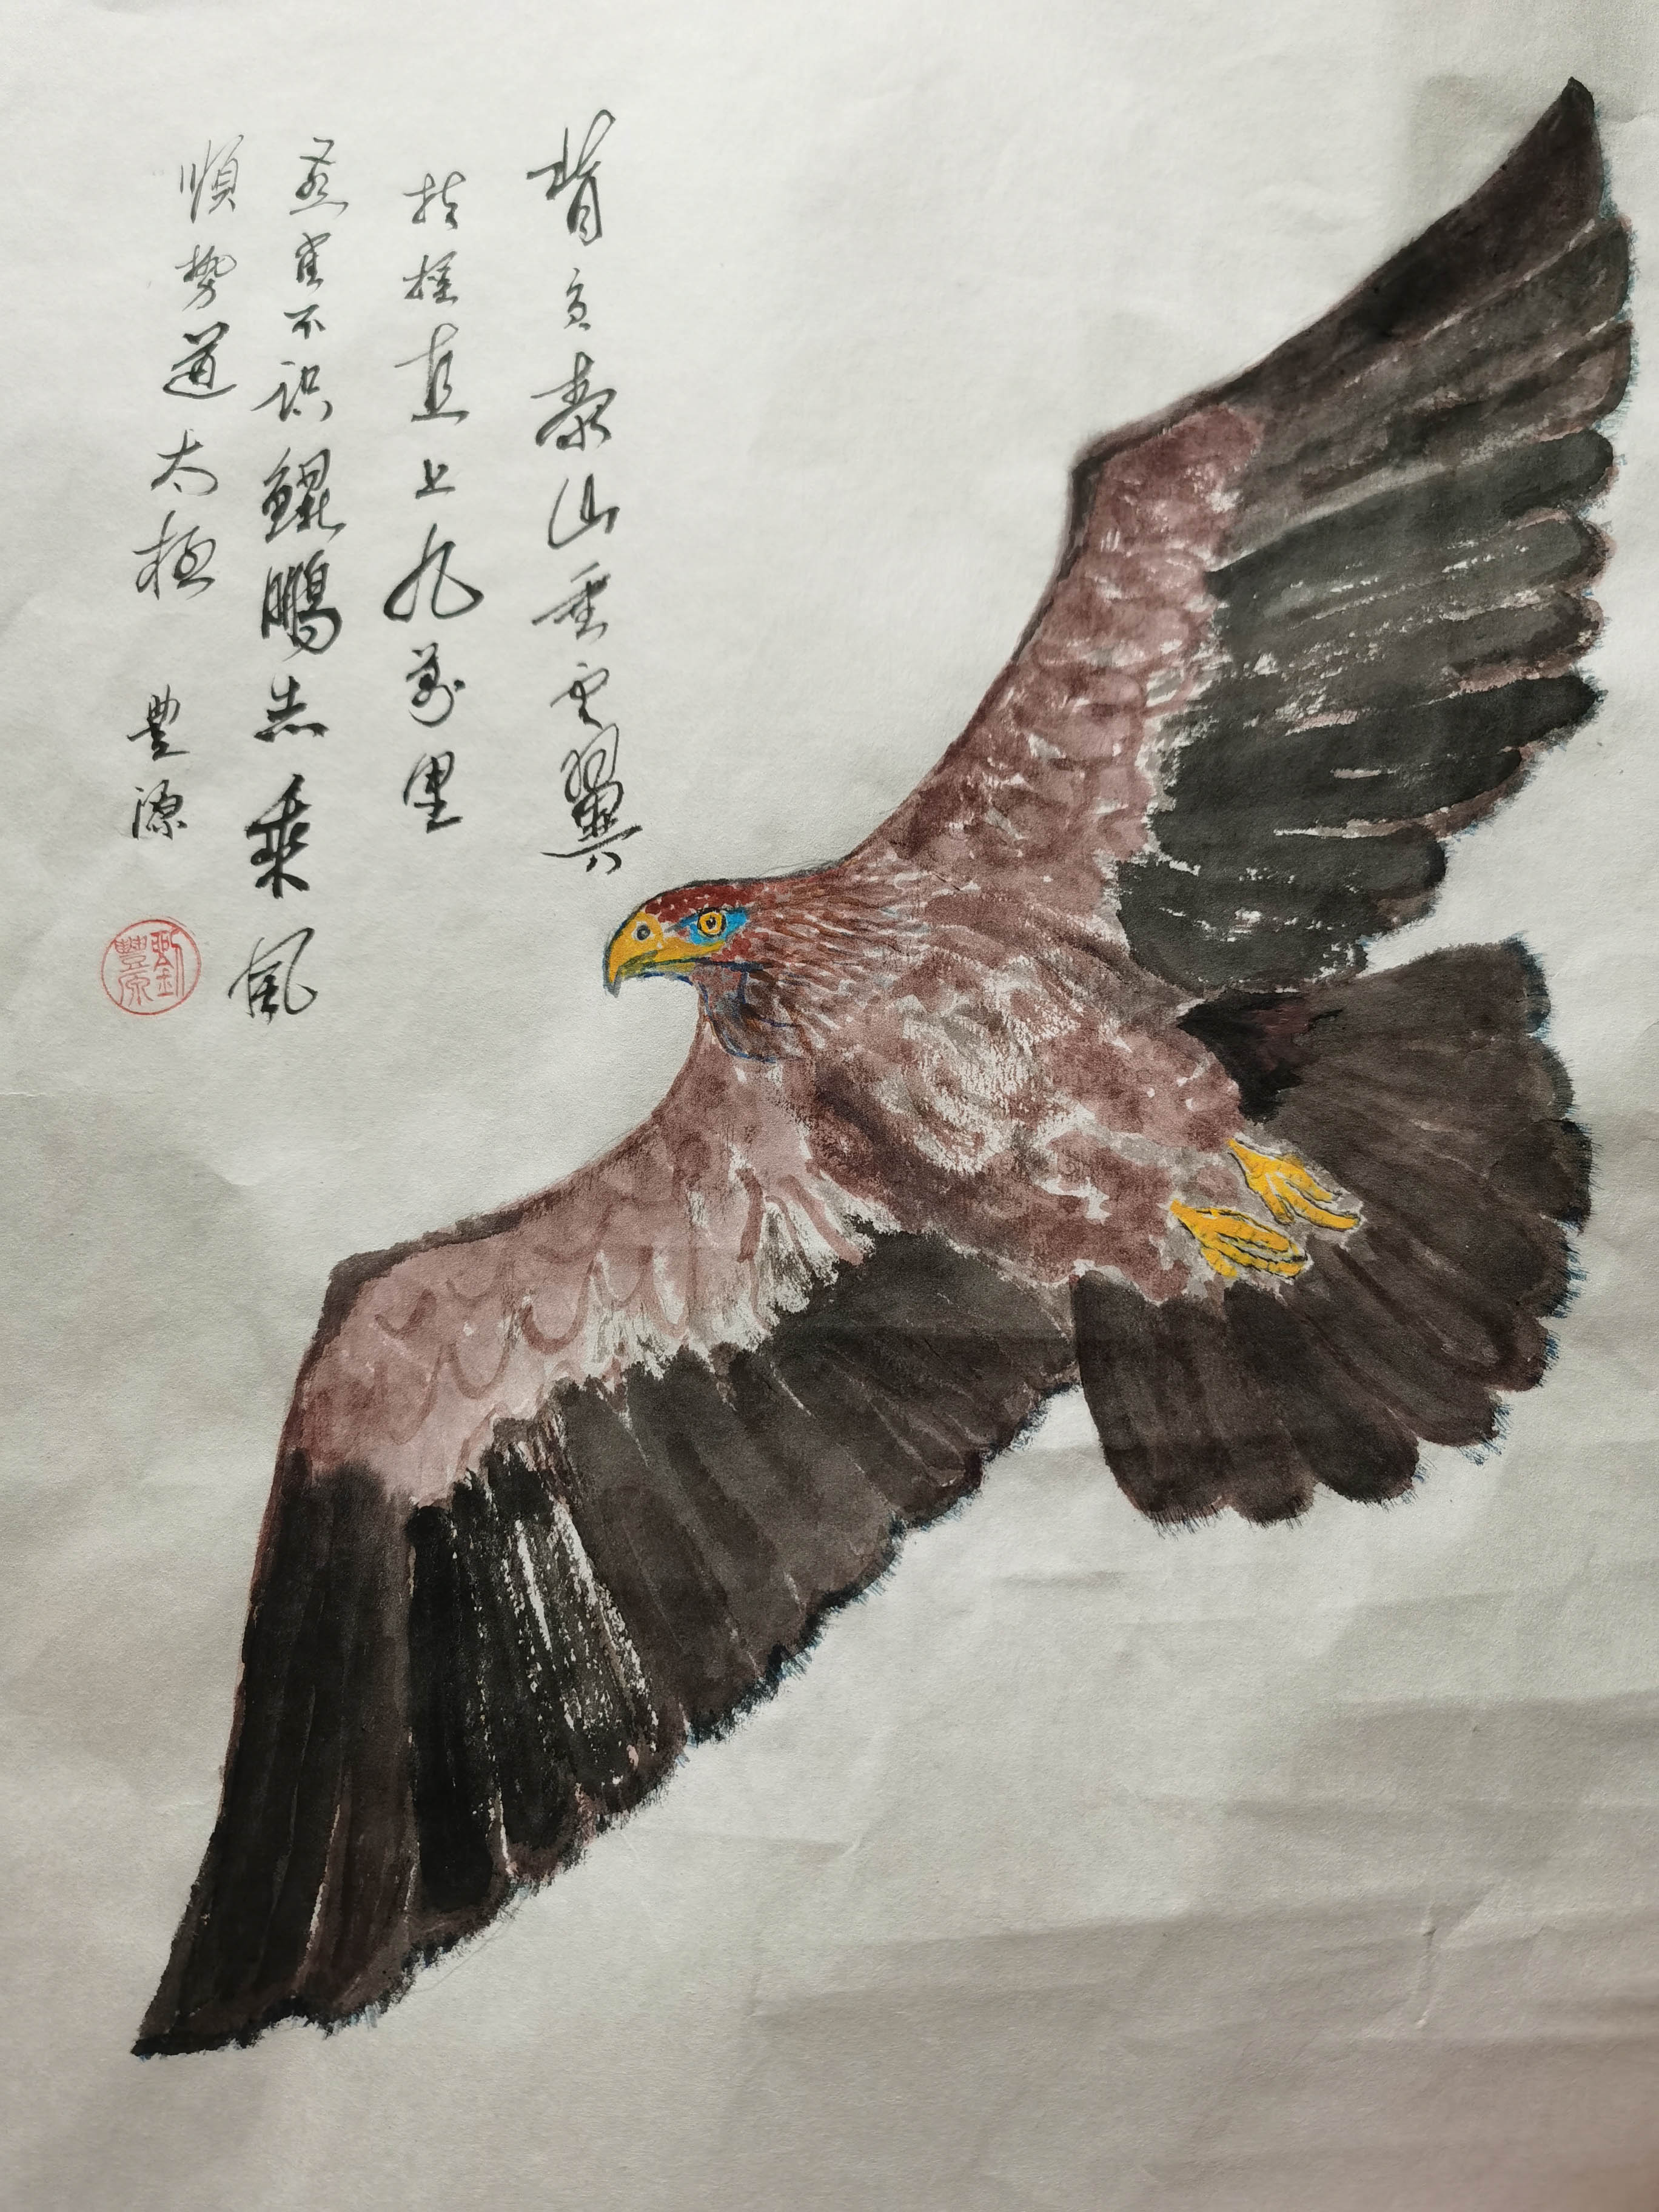 背负泰山垂云翼
扶摇直上九萬里
燕雀不识鯤鵬志乘風
順势道太极
豊源
劉豐源